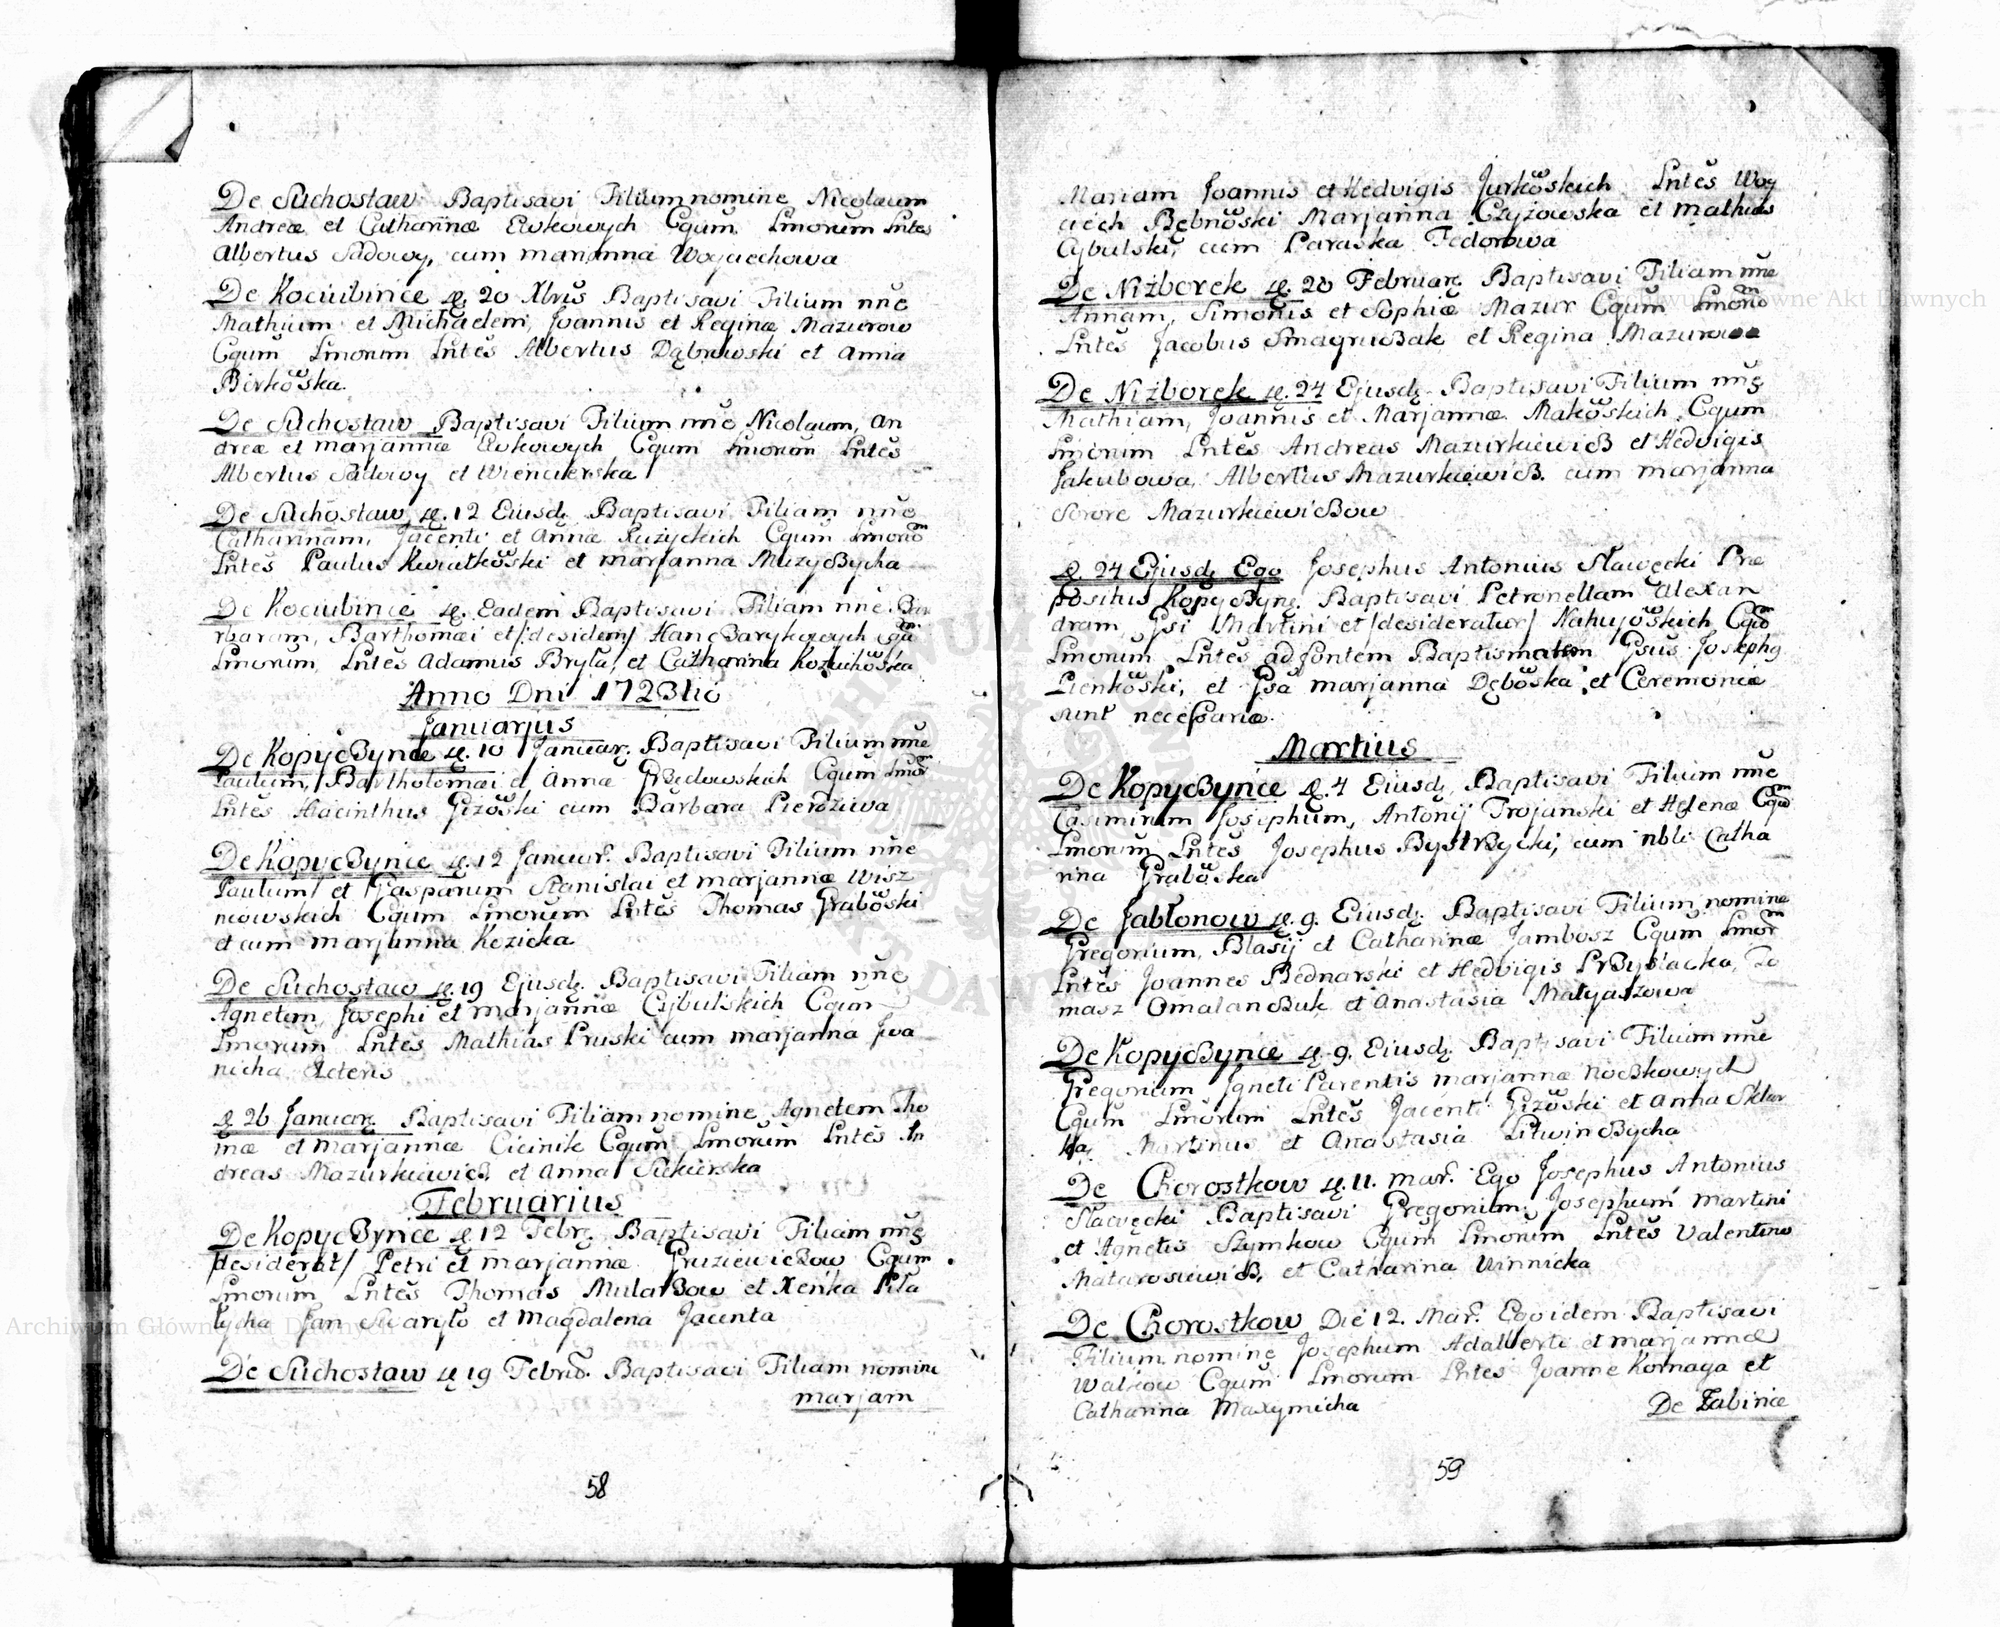 De Suchostaw Baptisavi Filium nomine Nicolaum
Andreæ et Catharinæ Cgum Lmorum Lntes
Albertus Sadowy, cum marianna Woyciechowa
De Kociubince 20 Xbris Baptisavi Filium nne
Mathium et Michaelem, Joannis et Reginæ Mazurow
Cgum Lmorum Lntes Albertus Dąbrowski et Anna
Birkowska.
De Suchostaw Baptisavi Filium nne Nicolaum, An
dreæ et marjannæ Cgum Lmorum Lntes
Albertus Sadowy et
De Suchostaw, 12 Eiusdę Baptisavi Filiam nne
Catharinam, Jacenti et Annæ Ruzyckich Cgum Lmorum
Lntes Paulus Kwiatkowski et marjanna MuzyBycha
De Kociubince Eadem Baptisavi Filiam nne Bar
baram, Barthomæi et /:desidem/ HancBarykowych Cgum
Lmorum, Lntes Adamus Bryła, et Catharina Kozuchowska
Anno Dni 1723tio
Januarjus
De KopycBynce 10 Januar. Baptisavi Filium nne
Paulum, Bartholomæi et Annæ Cgum Lmor
Lntes Hiacinthus Gizowski cum Barbara
De KopycBynce 12 Januar. Baptisavi Filium nne
Paulum et Gasparum Stanislai et marjannæ Wisz
niowskich Cgum Lmorum Lntes Thomas Grabowski
et cum marjanna Kozicka
De Suchostaw 19 Eiusdę Baptisavi Filiam nne
Agnetem, Josephi et marjannæ Cybulskich Cgum
Lmorum Lntes Mathias Pruski cum marjanna Iwa
nicha
26 Januar. Baptisavi Filiam nomine Agnetem Tho
mæ et Marjannæ Cicinik Cgum Lmorum Lntes An
dreas MazurkiewicB et Anna
Februarius
De KopycBynce 12 Febr. Baptisavi Filiam nne
/desiderat/ Petri et marjannæ Cgum
Lmorum Lntes Thomas MularBow et Xenka Piła
tycha Jan et Magdalena Jacenta
De Suchostaw 19 Febru. Baptisavi Filiam nomine
marjam
58
Mariam Joannis et Hedvigis Jurkowskich Lntes Woy
ciech Bębnowski Marjanna Czyżowska et mathias
Cybulski, cum Paraska Fedorowa
De Niżborek 20 Februar. Baptisavi Filiam nne
Annam, Simonis et Sophiæ Mazur Cgum Lmorum
Lntes Jacobus SmagruBak et Regina Mazurowa
De Niżborek 24 Ejusdę Baptisavi Filium nne
Mathiam, Joannis et Marjannæ Makowskich Cgum
Lmorum Lntes Andreas MazurkiewicB et Hedvigis
Jakubowa, Albertus MazurkiewicB cum marjanna
Sorore MazurkiewicBow
24 Ejusdę Ego Josephus Antonius Sławęcki Præ
positus KopycBynę. Baptisavi Petronellam Alexan
dram, Gsi Martini et /desideratur/ Nahujowskich Cgum
Lmorum Lntes ad fontem Baptismatem Gsus Josephg
Pienkowski, et Gsa marjanna Dębowska et Ceremoniæ
sunt necessariæ.
Martius
De KopycBynce 4 Eiusdę Baptisavi Filium nne
Casimirum Josephum, Antonij Trojanski et Helenæ Cgum
Lmorum Lntes Josephus BystrBycki, cum nbli Catha
rina Grabowska
De Jabłonow 9. Eiusdę Baptisavi Filium nomine
Gregorium, Blasij et Catharinæ Jambosz Cgum Lmor
Lntes Joannes Bednarski et Hedvigis PrBybłacka, To
masz OmalancBuk et Anastasia Matyaszowa
De KopycBynce 9. Eiusdę Baptisavi Filium nne
Gregorium Igneti Parentis marjannæ Noc3kowych
Cgum Lmorum Lntes Jacenti Gizowski et Anna Sklar
ka, Martinus et Anastasia LitwinBycha
De Chorostkow 11. mar. Ego Josephus Antonius
Sławęcki Baptisavi Gregorium, Josephum martini
et Agnetis Szymkow Cgum Lmorum Lntes Valentino
et Catharina Winnicka
De Chorostkow Die 12. Mar. Ego idem Baptisavi
Filium nomine Josephum Adalberti et marjannæ
Walkow Cgum Lmorum Lntes Joanne Kornaga et
Catharina Maxymicha
De Łabince
59